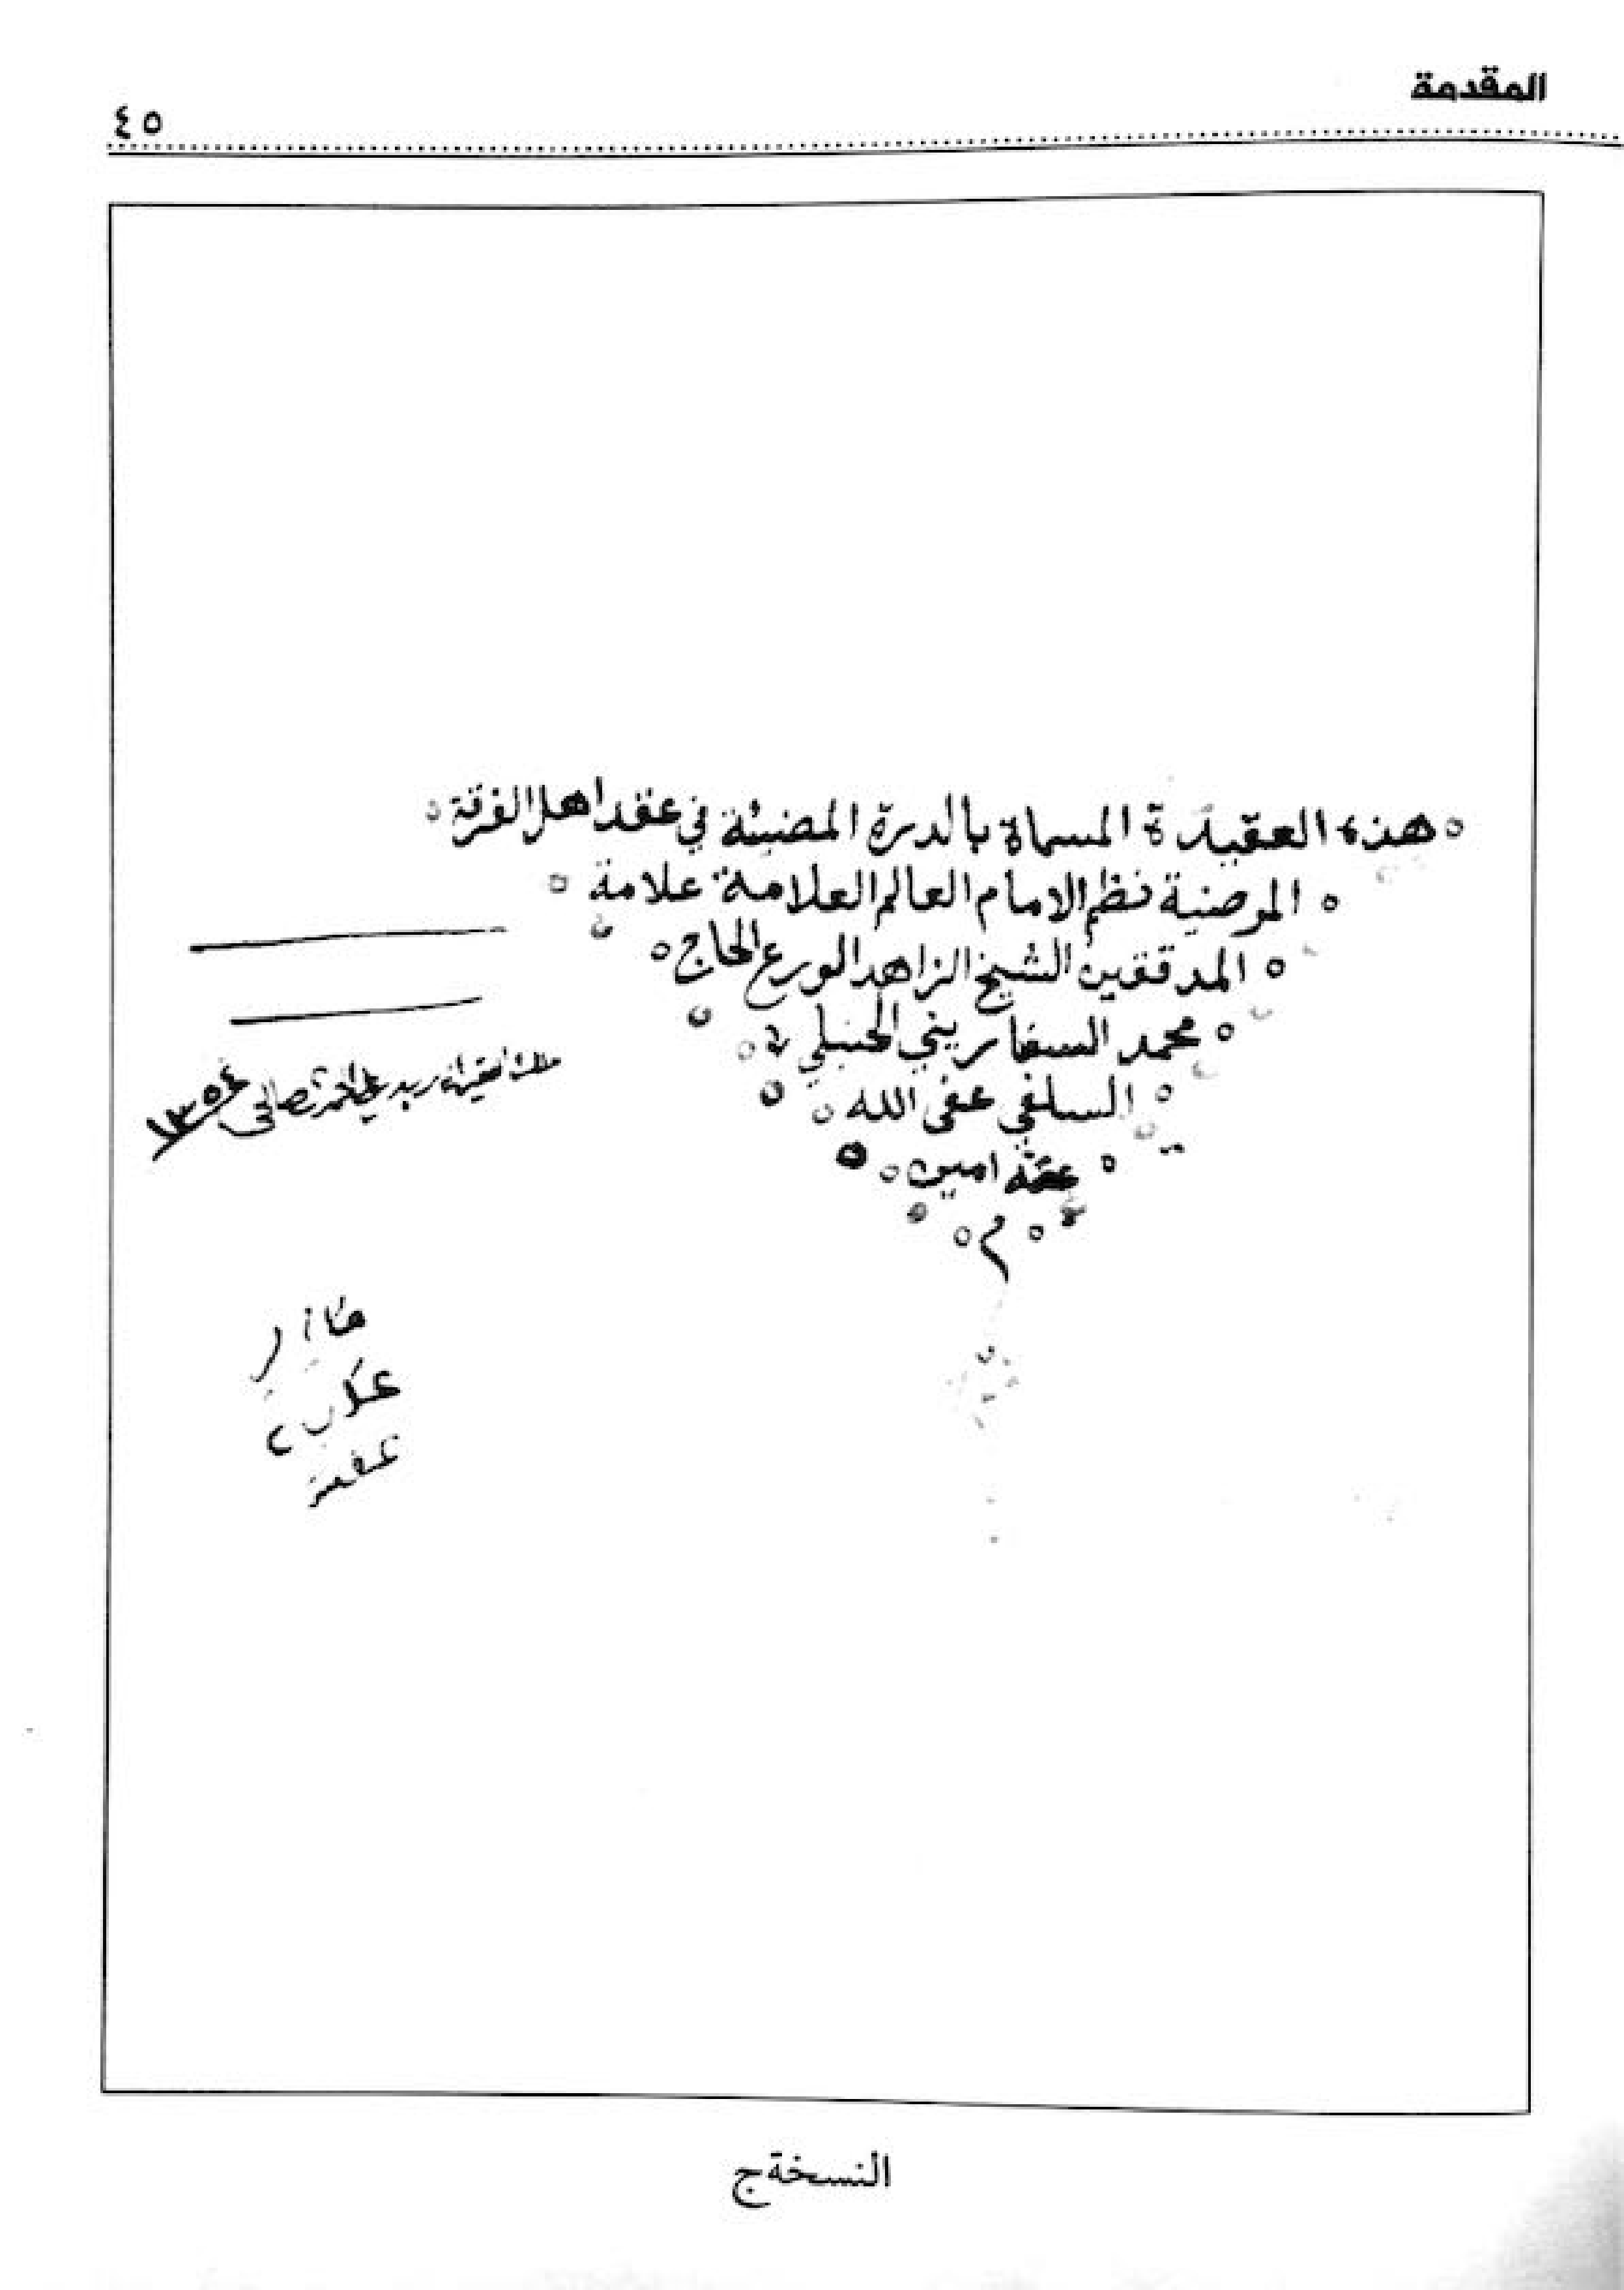 المقدمة
٤٥
هذه العقيدة المسماة بالدرة المضيئة في عقد اهل الفرقة
المرضية نظم الامام العالم العلامة علامة
المدققين الشيخ الزاهد الورع الحاج
محمد السفاريني الحنبلي
السلفي عفى الله
عنه امين
م
١٣٥٤
النسخة ج